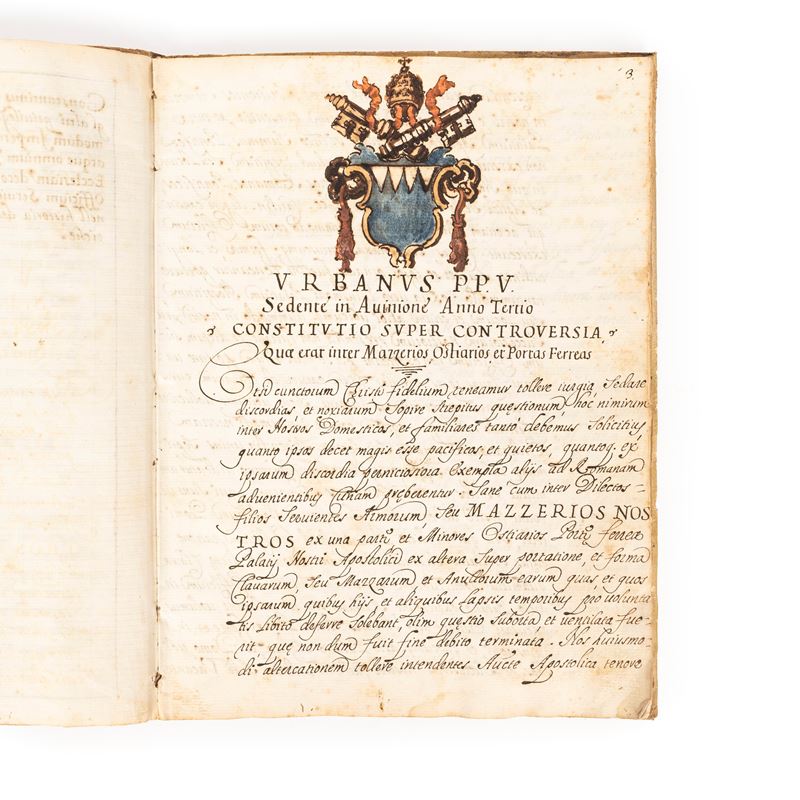 3.
VRBANVS PP V.
Sedente in Auinione Anno Tertio
CONSTITVTIO SVPER CONTROVERSIA
Quæ erat inter Mazzerios Ostiarios et Portas Ferreas
Etsi cunctorum Christi fidelium, teneamur tollere iurgia, Sedare
discordias, et noxiarum Sopire Strepitus quęstionum, hoc nimirum
inter Nostros Domesticos, et familiares tantò debemus Solicitius
quanto ipsos decet magis esse pacificos, et quietos, quantoq. ex
ipsarum discordia perniciosiora Exempla alijs ad Romanam
aduenientibus Curiam pręberentur. Sanè cum inter Dilectos -
filios Seruientes Armorum, Seu MAZZERIOS NOS
TROS ex una parte et Minores Ostiarios Portę ferreæ
Palatij Nostri Apostolici ex altera Super portatione, et forma
Clauarum, Seu Mazzarum et Anulorum earum quas et quos
ipsarum, quibus hijs, et aliquibus Lapsis temporibus pro volunta
tis Libito deferre Solebant, olim quęstio Suborta et uentilata fue-
rit, quę non dum fuit fine debito terminata. Nos huiusmo-
di altercationem tollere intendentes Aucte Apostolica tenore